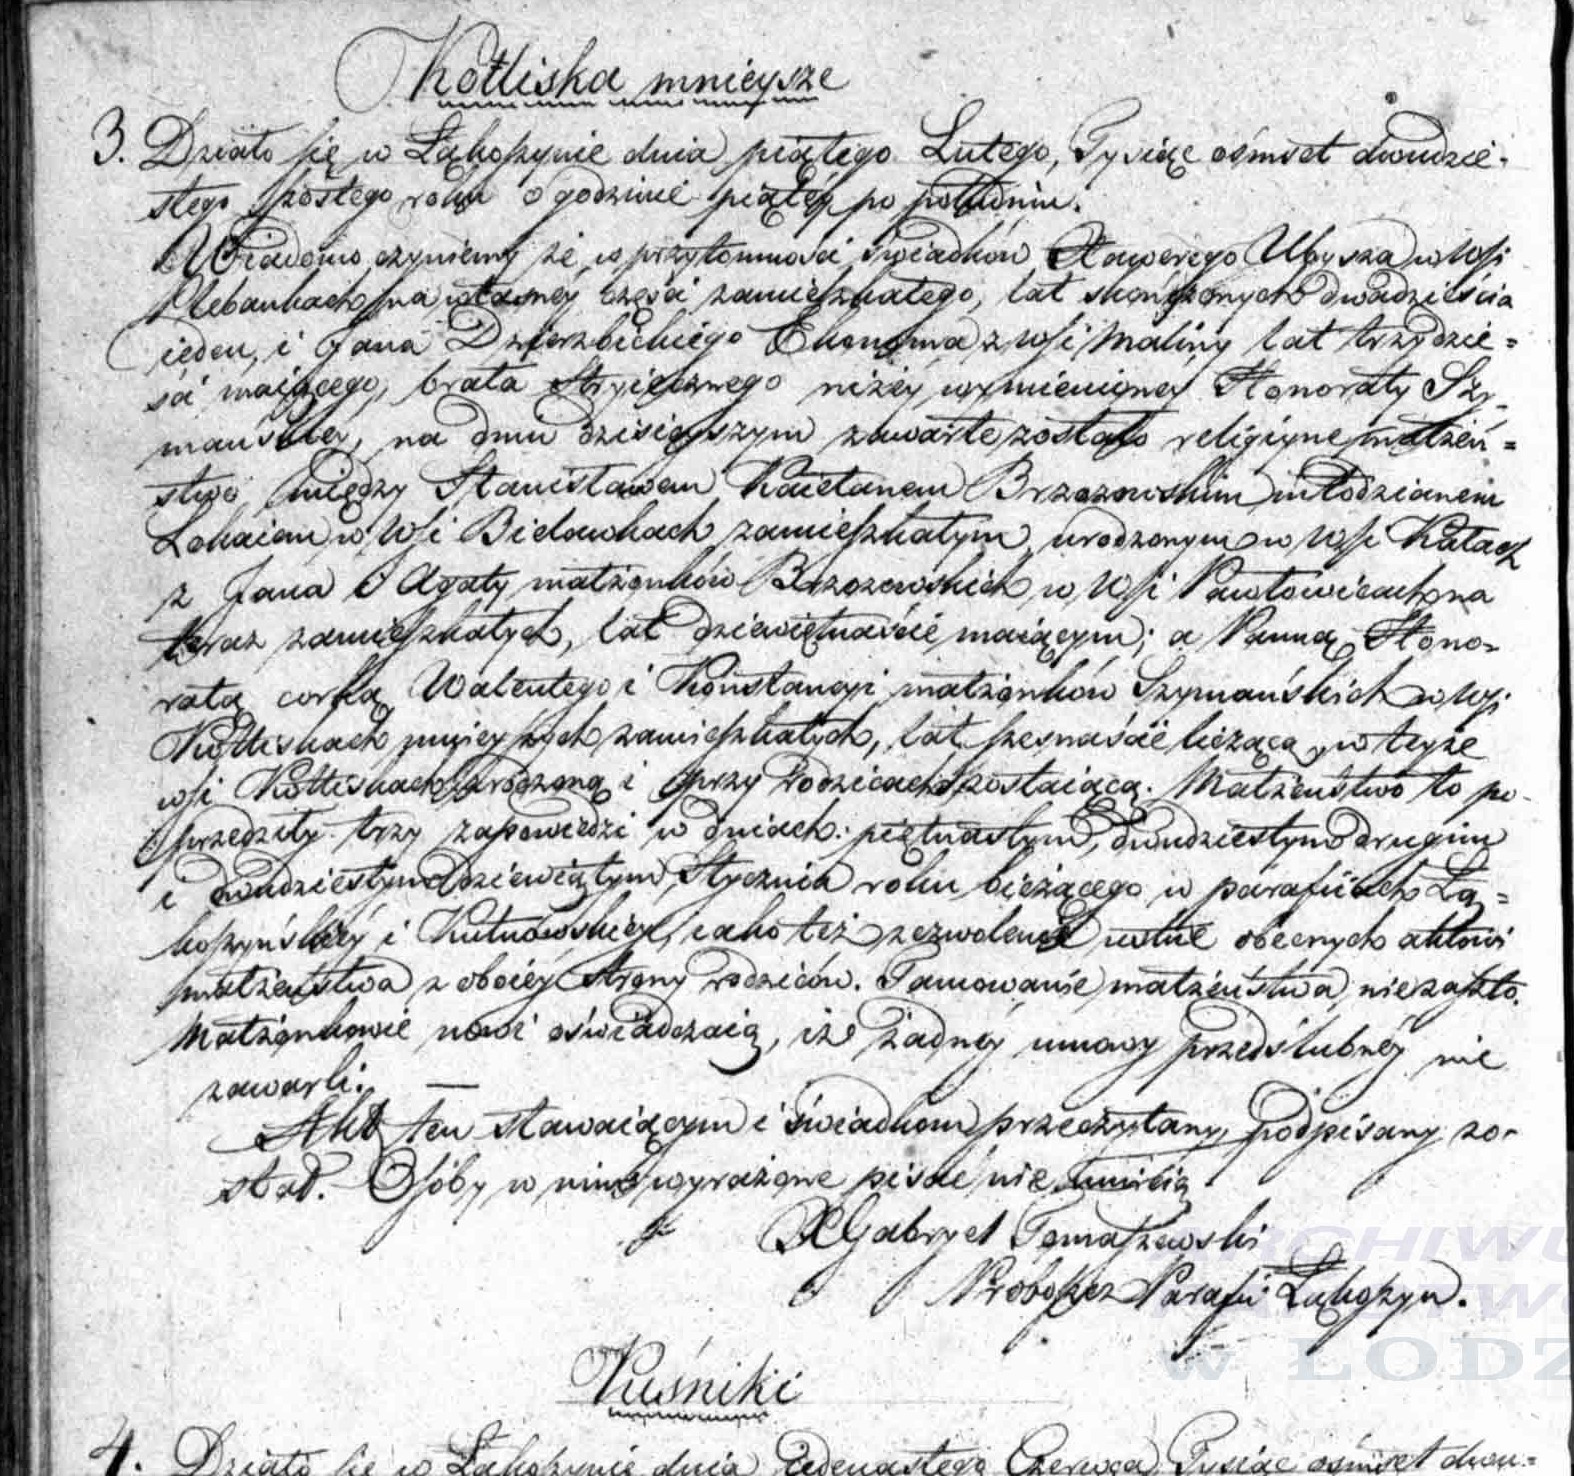 Kotliska mnieysze
3. Działo się w Łąkoszynie dnia piątego Lutego, Tysiąc ośmset dwudzie=
stego szóstego roku o godzinie piątéy po południu.
Wiadomo czyniemy że w przytomności świadków Xawerego Ubysza w Wsi
Klebankach na własney części zamieszkałego, lat skończonych dwadzieścia
ieden, i Jana Dzierzbickiego Ekonoma z wsi Maliny lat trzydzie=
ści maiącego, brata stryiecznego niżéy wymienionéy Honoraty Szy=
mańskiey, na dniu dzisieyszym zawarte zostało religiyne małżeń=
stwo między Stanisławem Kaietanem Brzozowskim młodzianem
Lokaiem w Wsi Bielawkach zamieszkałym, urodzonym w Wsi Kątach
z Jana i Agaty małżonków Brzozowskich w Wsi Pawłowicach na
teraz zamieszkałych, lat dziewiętnaście maiącym; a Panną Hono=
ratą corką Walentego i Konstancyi małżonków Szymańskich w Wsi
Kotliskach mnieyszych zamieszkałych, lat szesnaście liczącą w teyże
wsi Kotliskach urodzoną i przy Rodzicach zostaiącą. Małżeństwo to po=
przedziły trzy zapowiedzi w dniach: piętnastym, dwudziestym drugim
i dwudziestym dziewiątym Stycznia roku bieżącego w parafiiach Łą=
koszyńskiéy i Kutnowskiéy, iako też zezwolenie ustne obecnych aktowi
małżeństwa z oboiéy strony rodziców. Tamowanie małżeństwa nie zaszło.
Małżonkowie nowi oświadczaią, iż żadnéy umowy przedślubnéy nie
zawarli. —
Akt ten stawaiącym i świadkom przeczytany, podpisany zo=
stał. Osoby w nim wyrażone pisać nie umieią
X Gabryel Tomaszewski
Proboszcz Parafii Łąkoszyn.
Kuśniki
4. Działo się w Łąkoszynie dnia Jedenastego Czerwca Tysiąc ośmset dwu=
ARCHIWU
PAŃSTWO
w ŁODZ